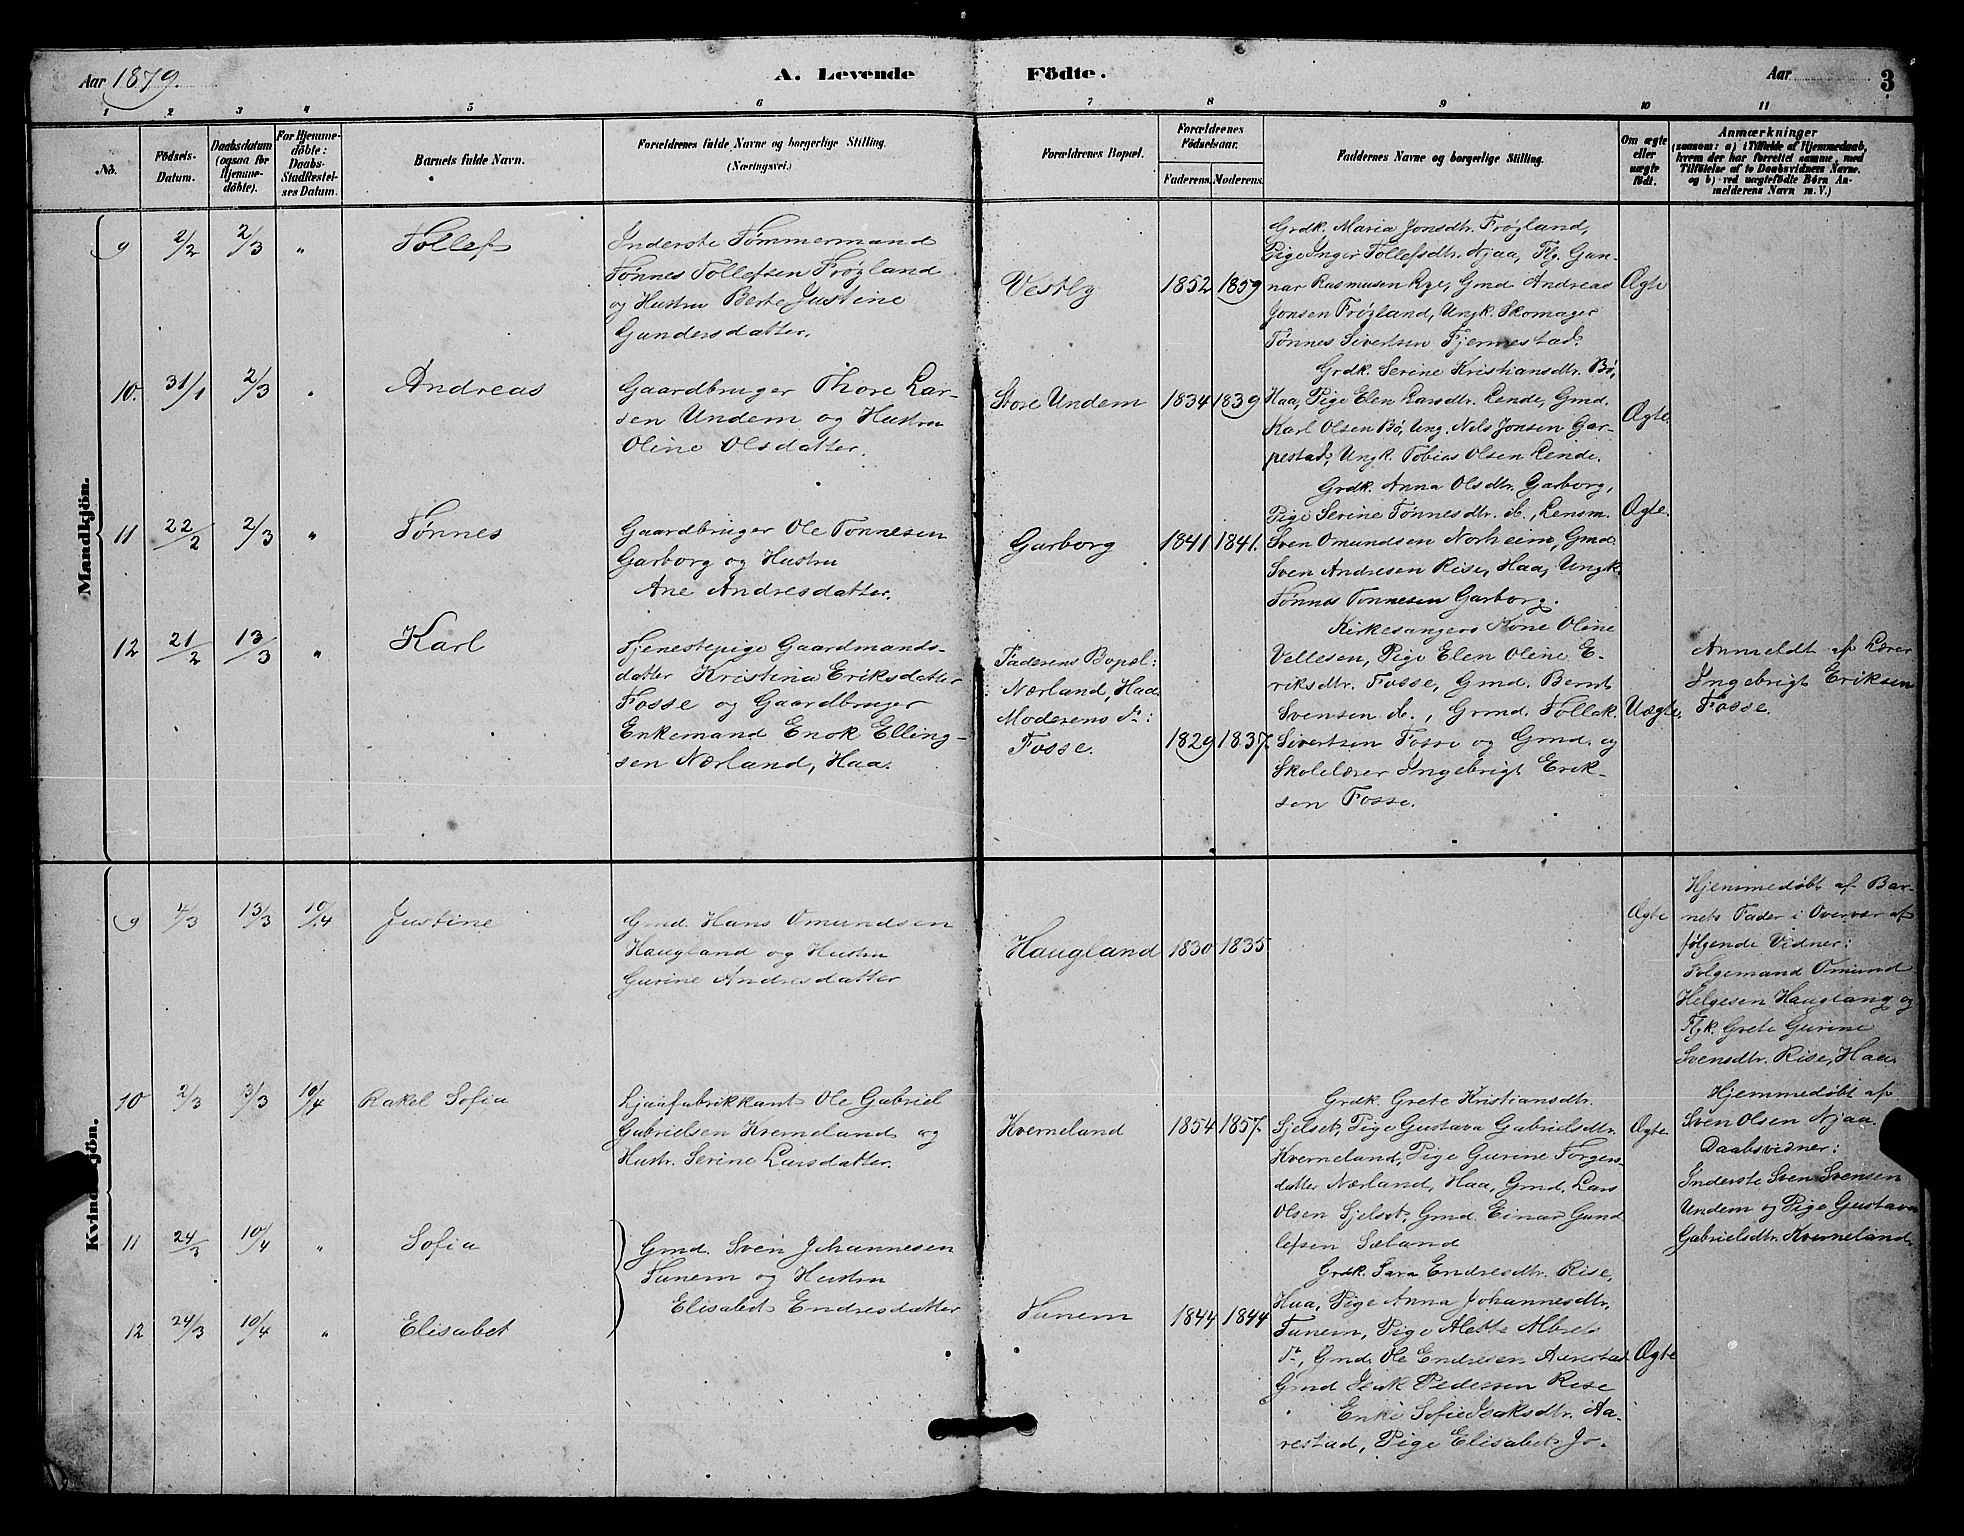 Aar 1879. A. Levende Födte. Aar 3
1 2 3 4 5 6 7 8 9 10 11
No.
Födsels-
Datum.
Daabsdatum
(ogsaa for
Hjemme-
döbte).
For Hjemme-
döbte:
Daabs-
Stadfæstel-
ses Datum.
Barnets fulde Navn.
Forældrenes fulde Navne og borgerlige Stilling.
(Næringsvei.)
Forældrenes Bopæl.
Forældrenes
Födselsaar.
Faderens. Moderens.
Faddernes Navne og borgerlige Stilling.
Om ægte
eller
uægte
födt.
Anmærkninger
(saasom: a) i Tilfælde af Hjemmedaab,
hvem der har forrettet samme, med
Tilföielse af to Daabsvidners Navne.
og b) ved uægtefödte Börn An-
melderens Navn m. V.)
Mandkjön.
9 2/2 2/3 " Tollef
Inderste Tømmermand
Tønnes Tollefsen Frøyland
og Hustru Berte Justine
Gundersdatter.
Vestly 1852 1859
Grdk. Maria Jonsdtr. Frøyland,
Pige Inger Tollefsdtr. Njaa, Fg. Gun-
nar Rasmusen Rye, Gmd Andreas
Jonsen Frøyland, Ungk. Skomager
Tønnes Sivertsen Tjernestad.
Ægte
10. 31/1 2/3 " Andreas
Gaardbruger Thore Lar-
sen Undem og Hustru
Oline Olsdatter.
Store Undem 1834 1839
Grdk. Serine Kristiansdtr. Bø,
Haa, Pige Elen Larsdtr. Lende, Gmd.
Karl Olsen Bø, Ung. Nils Jonsen Gar-
pestad, Ungk. Tobias Olsen Lende.
Ægte.
11 22/2 2/3 " Tønnes
Gaardbruger Ole Tønnesen
Garborg og Hustru
Ane Andresdatter.
Garborg 1841 1841.
Grdk. Anna Olsdtr. Garborg,
Pige Serine Tønnesdtr. ib., Lensm.
Sven Omundsen Norheim, Gmd.
Sven Andresen Rise, Haa, Ungk.
Tønnes Tønnesen Garborg.
Ægte.
12 21/2 13/3 " Karl
Tjenestepige Gaardmands-
datter Kristina Eriksdatter
Fosse og Gaardbruger
Enkemand Enok Elling-
sen Nærland, Haa.
Faderens Bopæl:
Nærland, Haa
Moderens do:
Fosse.
1829 1837.
Kirkesangers Kone Oline
Vellesen, Pige Elen Oline E-
riksdtr. Fosse, Gmd. Bernt
Svensen ib., Grmd. Tollak
Sivertsen Fosse og Gmd. og
Skolelærer Ingebrigt Erik-
sen Fosse.
Uægte.
Anmeldt af Lærer
Ingebrigt Eriksen
Fosse.
Kvindkjön.
9 4/3 13/3 10/4 Justine
Gmd. Hans Omundsen
Haugland og Hustru
Gurine Andresdatter
Haugland 1830 1835
Ægte
Hjemmedøbt af Bar-
nets Fader i Overvær af
følgende Vidner:
Følgemand Omund
Helgesen Haugland og
Flgk. Grete Gurine
Svensdtr. Rise, Haa.
10 2/3 3/3 10/4 Rakel Sofia
Ljaafabrikkant Ole Gabriel
Gabrielsen Kverneland og
Hustr. Serine Larsdatter.
Kverneland 1854 1857.
Grdk. Grete Kristiansdtr.
Sjelset, Pige Gustava Gabrielsdtr.
Kverneland, Pige Gurine Torgers-
datter Nærland, Haa, Gmd. Lars
Olsen Sjelset, Gmd. Einar Gund
lefsen Sæland
Ægte
Hjemmedøbt af
Sven Olsen Njaa.
Daabsvidner:
Inderste Sven Svensen
Undem og Pige Gustava
Gabrielsdtr. Kverneland.
11 24/3 10/4 " Sofia
Gmd. Sven Johannesen
Tunem og Hustru
Elisabet Endresdatter
12 24/3 10/4 " Elisabet
Tunem 1844 1844
Grdk. Sara Endresdtr. Rise,
Haa, Pige Anna Johannesdtr.
Tunem, Pige Alette Albrets
do, Gmd. Ole Endresen Aarestad
Gmd Isak Pedersen Rise
Enke Sofie Isaksdtr. Aa-
restad, Pige Elisabet Jo-
Ægte